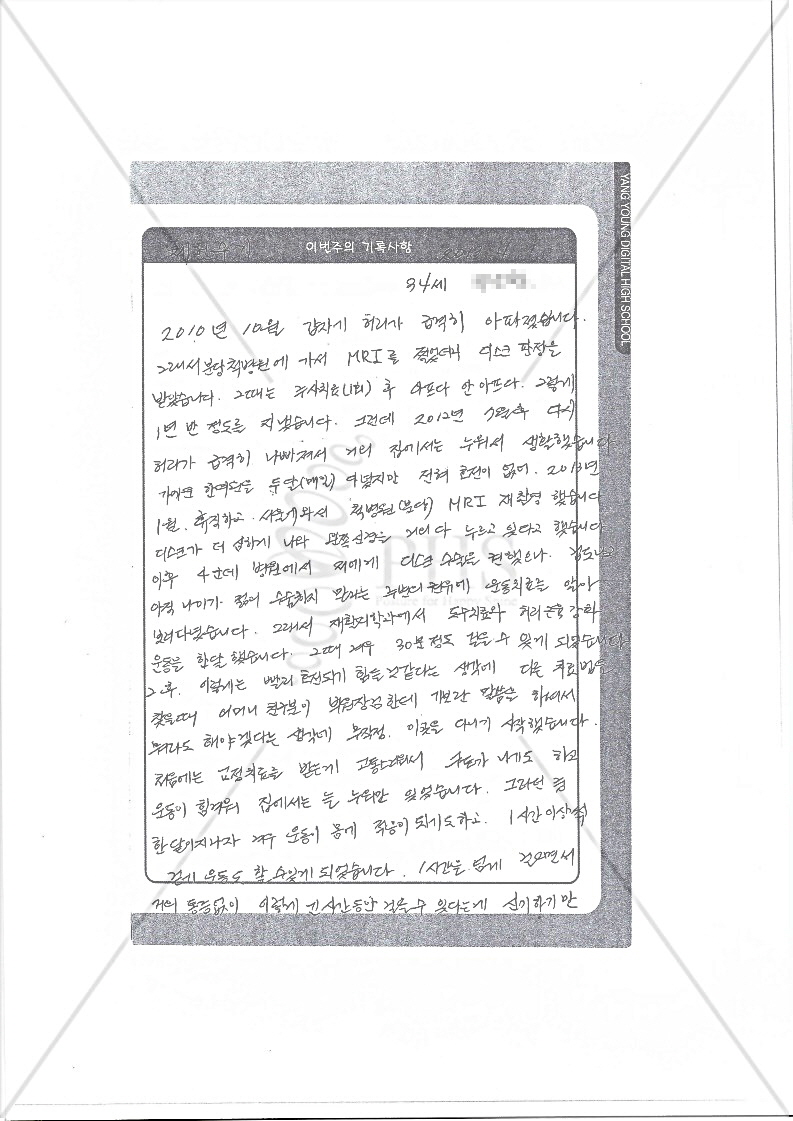 이번주의 기록사항
YANG YOUNG DIGITAL HIGH SCHOOL
34세
2010년 10월 갑자기 허리가 급격히 아파졌습니다.
그래서 분당척병원에 가서 MRI를 찍었더니 디스크 판정을
받았습니다. 그때는 주사치료(1회) 후 아프다 안아프다. 그렇게
1년 반 정도를 지냈습니다. 그런데 2012년 다시
허리가 급격히 나빠져서 거의 집에서는 누워서 생활했습니다
가까운 한의원을 두달(매일) 다녔지만 전혀 호전이 없어. 2013년
1월. 휴직하고. 서울에와서 척병원(분당) MRI 재촬영 했습니다
디스크가 더 심하게 나와 왼쪽신경을 거의다 누르고 있다고 했습니다
이후 4군데 병원에서 저에게 디스크 수술을 권했으나.
아직 나이가 젊어 수술하지 말라는 주변의 권유에 운동치료를 알아
보러다녔습니다. 그래서 재활의학과에서 도수치료와 허리근육강화
운동을 한달 했습니다. 그때 겨우 30분정도 걸을 수 있게 되었습니다
그후. 이렇게는 빨리 호전되기 힘들것같다는 생각에 다른 치료법을
찾을때 어머니 친구분이 박원장님한테 가보란 말씀을 하셔서
뭐라도 해야겠다는 생각에 무작정. 이곳을 다니기 시작했습니다.
처음에는 교정치료를 받는게 고통스러워서 구토가 나기도 하고
운동이 힘겨워 집에서는 늘 누워만 있었습니다. 그러던 중
한달이지나자 겨우 운동이 몸에 적응이 되기도하고. 1시간이상씩
걷기 운동도 할수있게 되었습니다. 1시간을 넘게 걸으면서
거의 통증없이 이렇게 긴시간동안 걸을수 있다는게 신기하기만